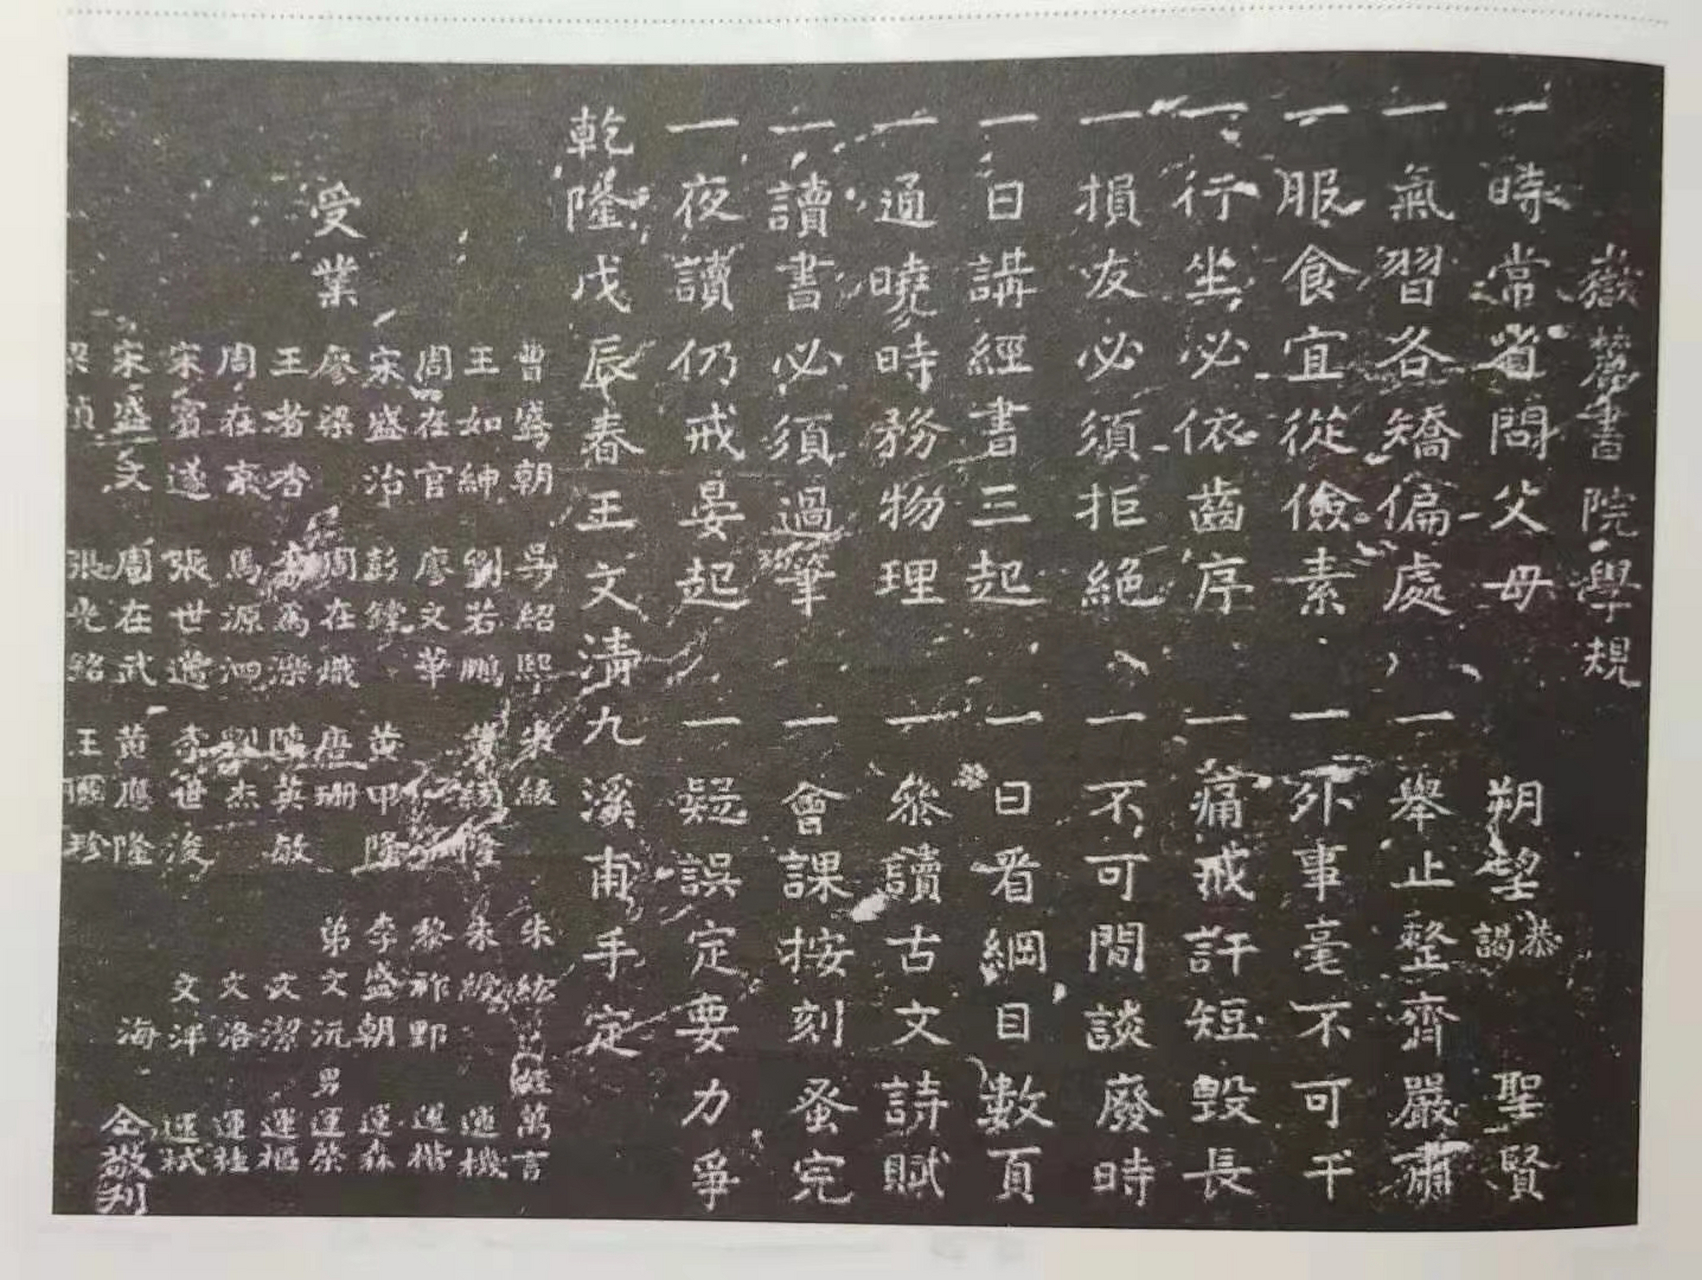 嶽麓書院學規
一時常省問父母 一朔望恭謁聖賢
一氣習各矯偏處 一舉止整齊嚴肅
一服食宜從儉素 一外事毫不可干
一行坐必依齒序 一痛戒訐短毀長
一損友必須拒絕 一不可閒談廢時
一日講經書三起 一日看綱目數頁
一通曉時務物理 一參讀古文詩賦
一讀書必須過筆 一會課按刻蚤完
一夜讀仍戒晏起 一疑誤定要力爭
乾隆戊辰春王文清九溪甫手定
受業
曹盛朝 吳紹熙 朱紱 朱紘 姪萬言
王如紳 劉若鵬 隆 朱 運機
周在官 廖文華 黎祚野 運楷
宋盛治 彭鏜 黃甲隆 李盛朝 運森
廖梁 周在熾 唐珊 弟文沅 男運榮
王者香 李為濼 陳英敏 文潔 運樞
周在東 馬源泗 劉杰 文洛 運桂
宋賓遂 張世邁 李世浚 文洋 運栻
宋盛文 周在武 黃應隆 海 仝敬刋
梁楨 張光銘 王國珍